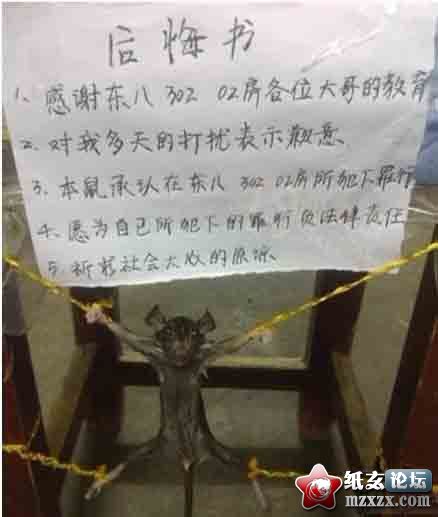 后悔书
1、感谢东八 302 02房各位大哥的教育
2、对我多天的打扰表示歉意
3、本鼠承认在东八 302 02房所犯下罪行
4、愿为自己所犯下的罪行负法律责任
5、祈求社会大众的原谅
纸玄论坛
mzxzx.com